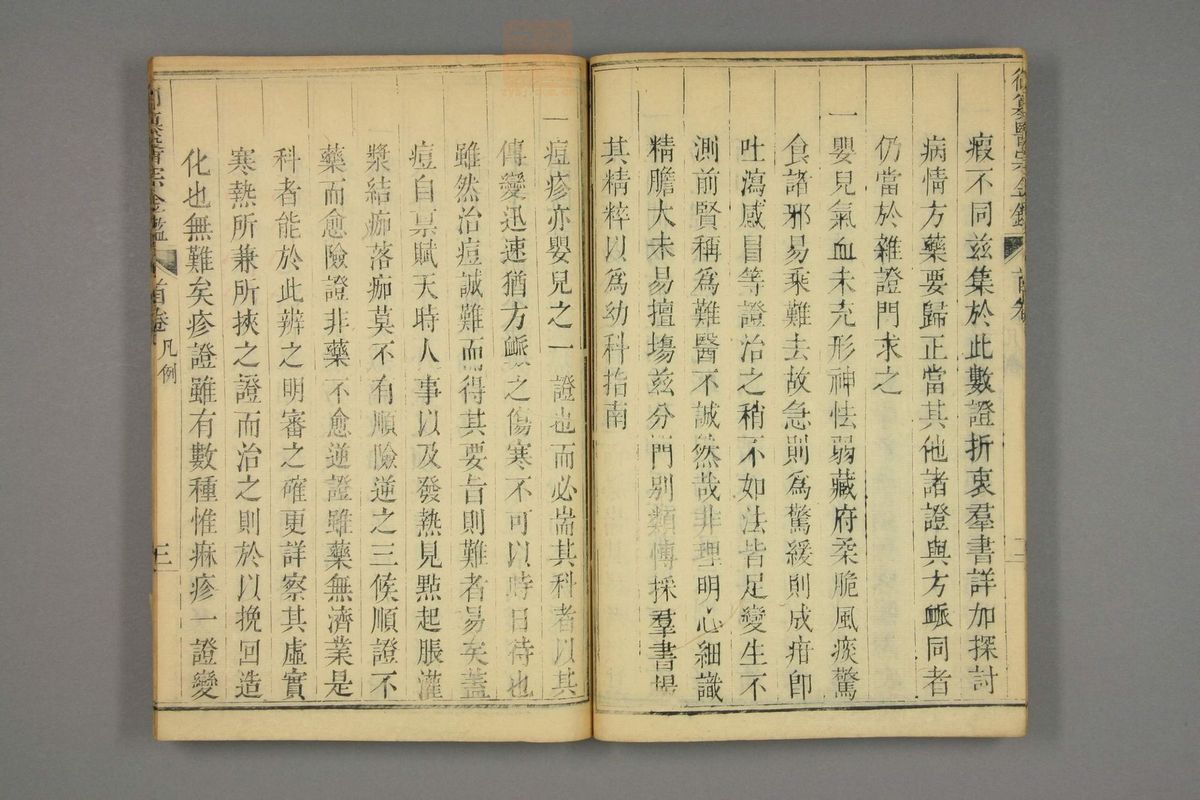 御纂醫宗金鑑
首卷
二
瘕不同兹集於此數證折衷羣書詳加探討
病情方藥要歸正當其他諸證與方䘑同者
仍當於雜證門求之
一嬰兒氣血未充形神怯弱藏府柔脆風痰驚
食諸邪易乘難去故急則爲驚緩則成疳卽
吐瀉感冒等證治之稍不如法皆足變生不
測前賢稱爲難醫不誠然哉非理明心細識
精膽大未易擅塲兹分門别類博採羣書揚
其精粹以爲幼科指南
一痘疹亦嬰兒之一證也而必耑其科者以其
傳變迅速猶方䘑之傷寒不可以時日待也
雖然治痘誠難而得其要旨則難者易矣蓋
痘自禀賦天時人事以及發熱見點起脹灌
漿結痂落痂莫不有順險逆之三候順證不
藥而愈險證非藥不愈逆證雖藥無濟業是
科者能於此辨之明審之確更詳察其虛實
寒熱所兼所挾之證而治之則於以挽回造
化也無難矣疹證雖有數種惟痳疹一證變
御纂醫宗金鑑
首卷 凡例
三